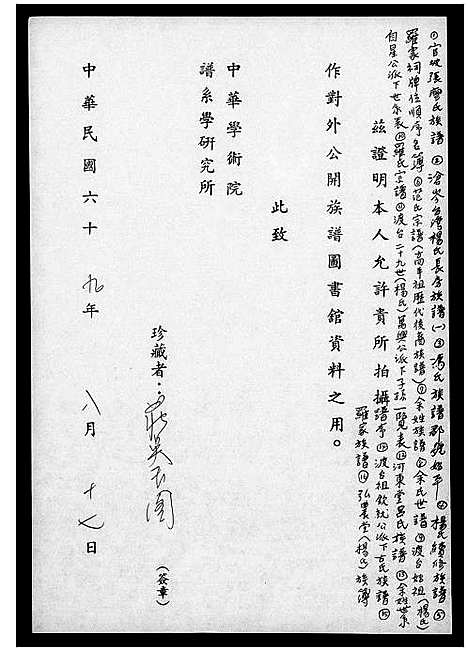 ①官坡張廖氏族譜②滄岑台灣楊氏長房族譜(一)③馮氏族譜郡號始平④楊氏續修族譜⑤
羅家祠牌位順序名簿⑥范氏宗譜(高平祖歷代後裔族譜)⑦余姓族譜⑧余氏世譜⑨渡台始祖(楊氏)
自星公派下世系表⑩羅氏宗譜⑪渡台二十九世(楊氏)萬興公派下子孫一覽表⑫河東堂呂氏族譜⑬余姓世系
茲證明本人允許貴所拍攝譜序⑭渡台祖欽就公派下古氏族譜⑮
羅家族譜⑯弘農堂(楊氏)族簿
作對外公開族譜圖書館資料之用。
此致
中華學術院
譜系學研究所
珍藏者: 莊吳玉圖
(簽章)
中華民國六十九年八月十七日